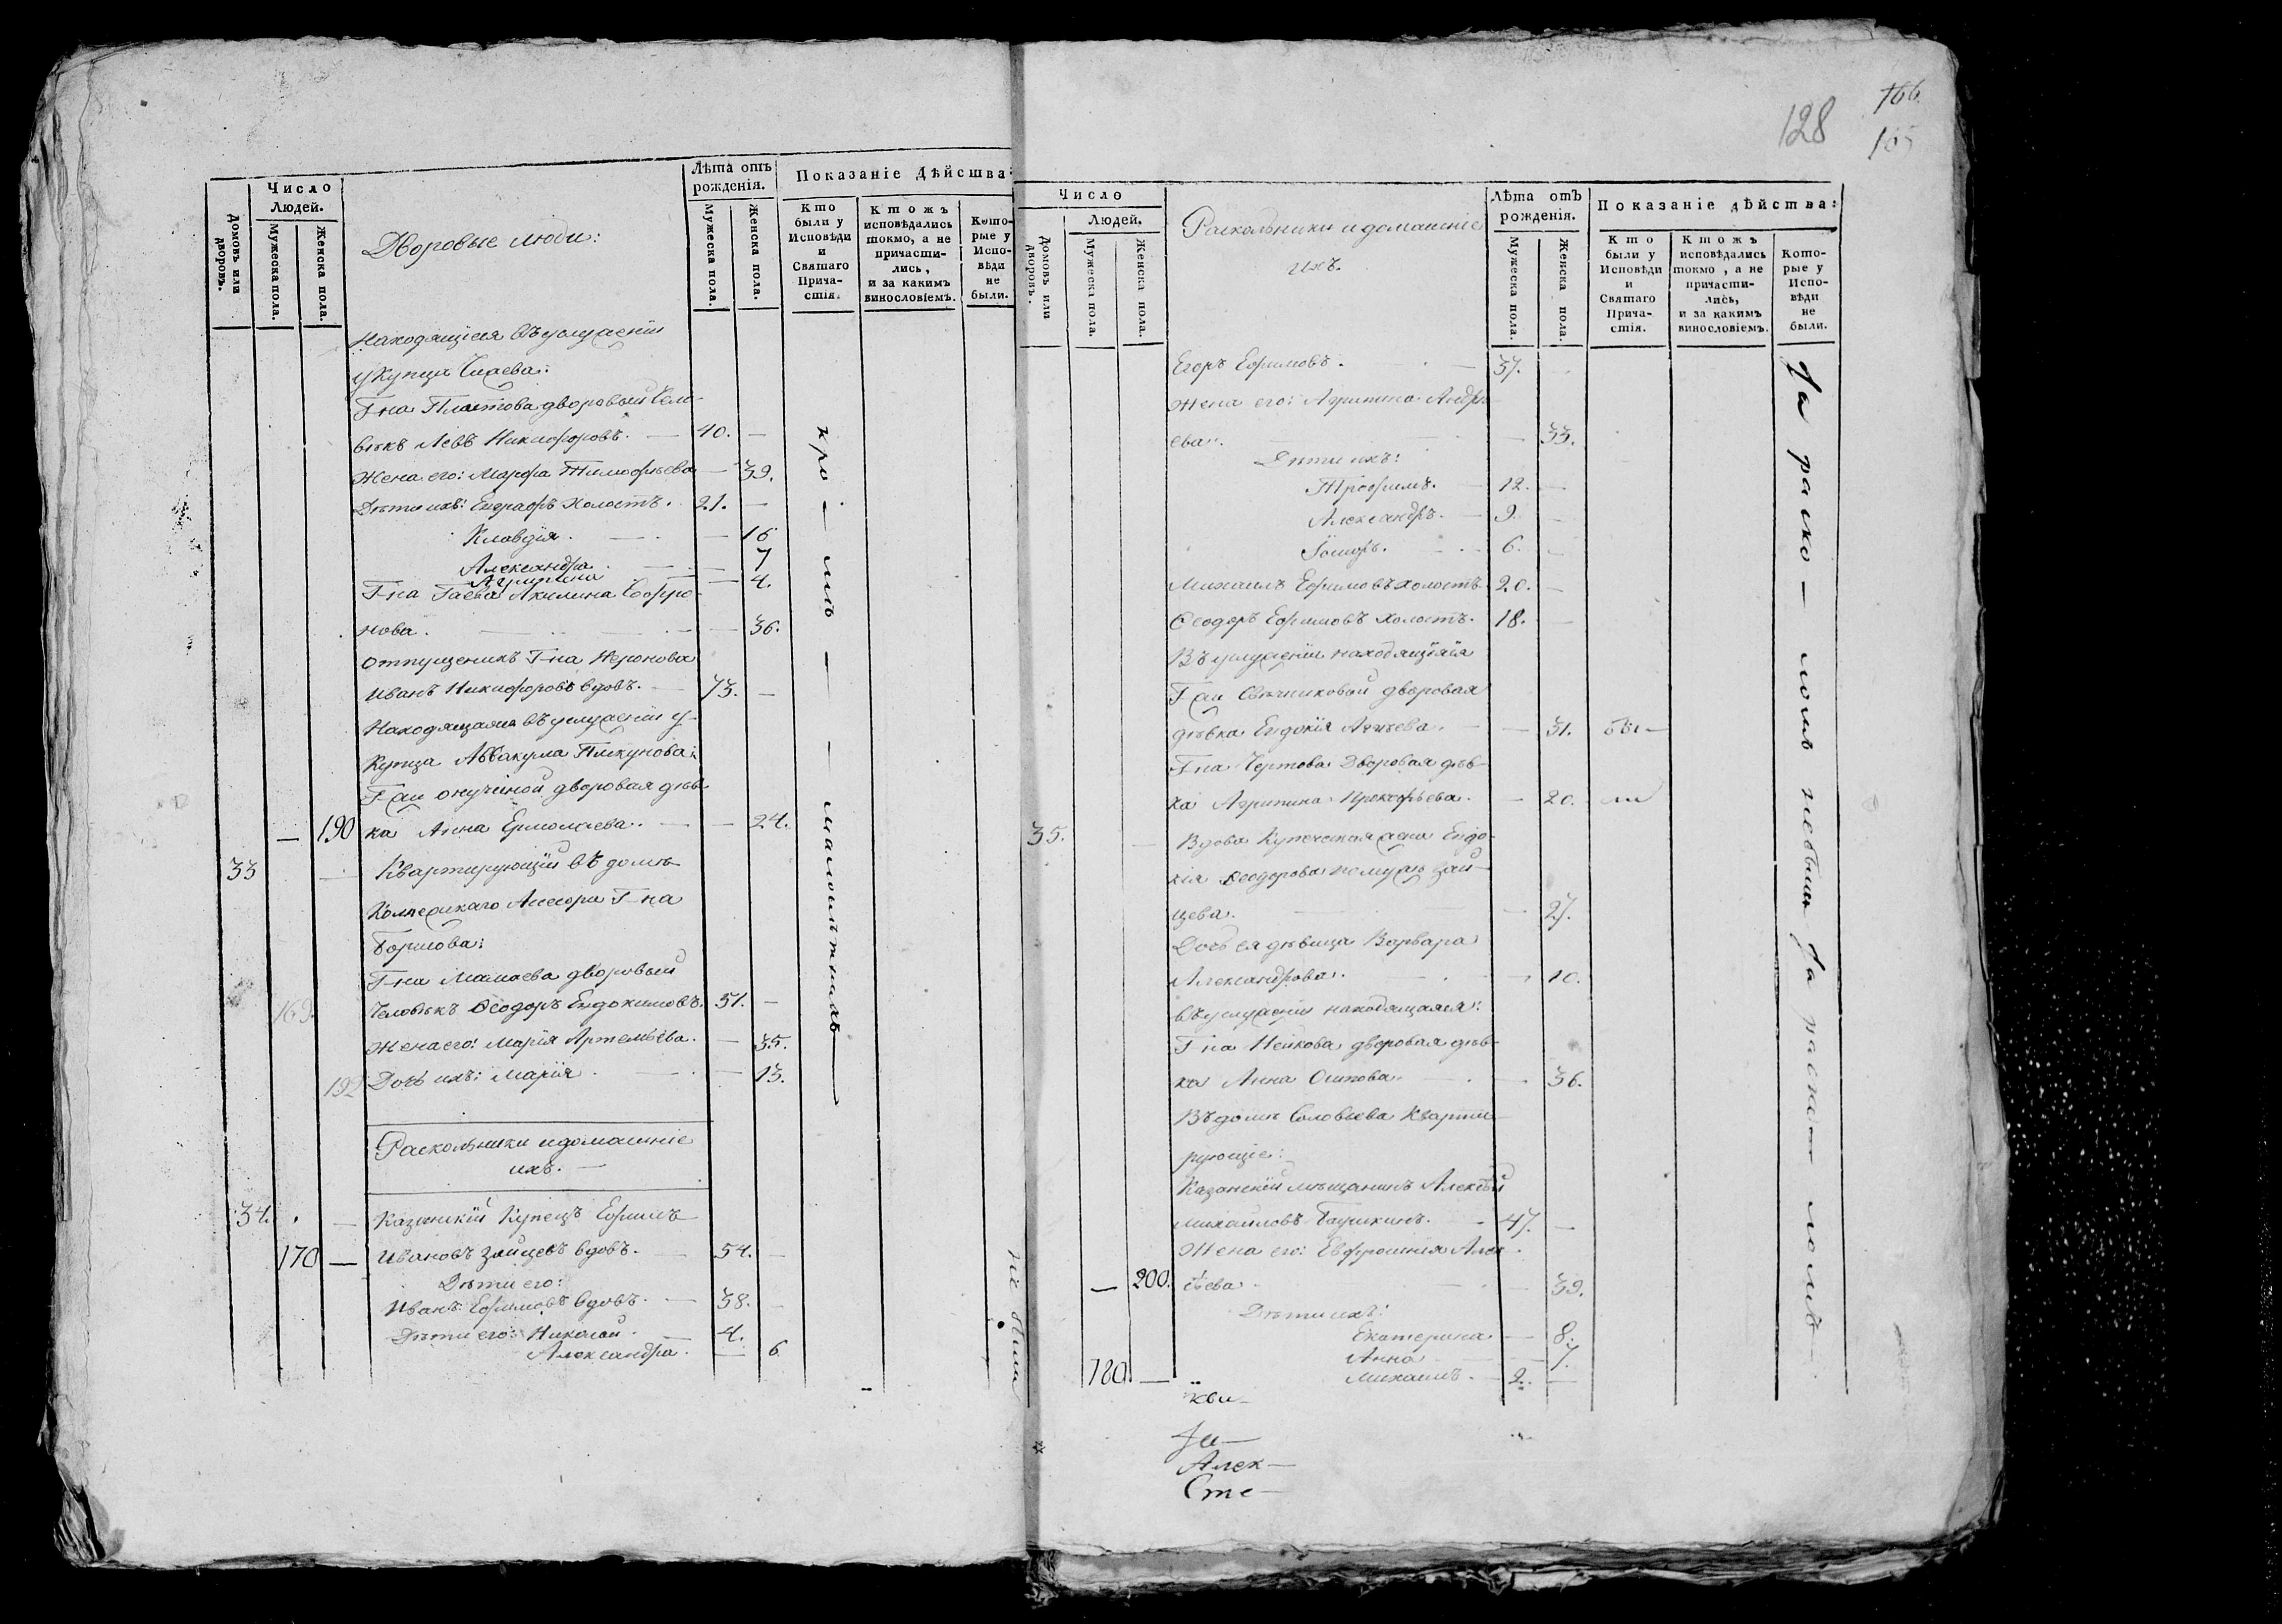 Домовъ или дворовъ.
Число Людей.
Мужеска пола.
Женска пола.
Дворовые люди:
Лѣта отъ рожденія.
Мужеска пола.
Женска пола.
Показаніе Дѣйства:
Кто были у Исповѣди и Святаго Прича-стія.
Ктожъ исповѣдались токмо, а не причасти-лись, и за какимъ винословіемъ.
Кото-рые у Испо-вѣди не были.
Находящіеся въ услуженіи
у Купца
Г-на Платова дворовый Чело-
вѣкъ Левъ Никифоровъ. — 40. —
Жена его: Марфа Тимофѣева — 39.
Дѣти ихъ: Евграфъ Холостъ. 21. —
Клавдія. — 16
Александра. — 7
Агрипина — 4.
Г-на Гаева Акилина Софро-
нова. — 36.
Отпущеникъ Г-на Неронова
Иванъ Никифоровъ вдовъ. — 73. —
Находящаяся въ услуженіи у
Купца Аввакума Пикунова:
Г-жи дворовая дѣв-
— 190 ка Анна Ермолаева. — 24.
33 — Квартирующіи въ домѣ
Коллежскаго Асессора Г-на
Г-на Мамаева дворовый
169. Человѣкъ Ѳеодоръ Евдокимовъ. 51. —
Жена его: Марія Артемьева. — 35.
192 Дочь ихъ: Марія. — 13.
Раскольники и домашніе
ихъ. —
34. — Казанскій Купецъ Ефимъ
170 — Ивановъ Зайцевъ вдовъ. — 54. —
Дѣти его:
Иванъ Ефимовъ вдовъ. — 38. —
Дѣти его: Николай. — 4.
Александра. — 6
кро — мѣ — малолѣтныхъ
не были
128
166.
165
Домовъ или дворовъ.
Число
Людей.
Мужеска пола.
Женска пола.
Раскольники и домашніе
ихъ.
Лѣта отъ рожденія.
Мужеска пола.
Женска пола.
Показаніе дѣйства:
Кто были у Исповѣди и Святаго Прича-стія.
Ктожъ исповѣдались токмо, а не причасти-лись, и за какимъ винословіемъ.
Кото-рые у Испо-вѣди не были.
Егоръ Ефимовъ. — 37.
Жена его: Агрипина Андрѣ-
ева. — 33.
Дѣти ихъ:
Трофимъ. — 12. —
Александръ. — 9. —
— 6. —
Михаилъ Ефимовъ холостъ 20. —
Ѳеодоръ Ефимовъ холостъ. 18. —
Въ услуженіи находящіяся
Г-жи Свѣчниковой дворовая
дѣвка Евдокія — 31. бы-
Г-на Чертова Дворовая дѣв-
ка Агрипина Прокофьева. — 20. ли
35. — Вдова Купеческая жена Евдо-
кія Ѳеодорова по мужѣ Зай-
цева. — 27.
Дочь ея дѣвица Варвара
Александрова. — 10.
въ услуженіи находящаяся:
Г-на дворовая дѣв-
ка Анна Осипова. — 36.
Въ домѣ Соловьева Кварти-
рующіе:
Казанскій мѣщанинъ Алексѣй
Михайловъ — 47. —
Жена его: Евфросинія Алек-
— 200. сѣева. — 39.
Дѣти ихъ:
Екатерина — 8.
Анна — 7.
180. — Михаилъ. — 2. —
За раско — ломъ небыли За раско — ломъ
Кви-
За-
Алек-
Сте-